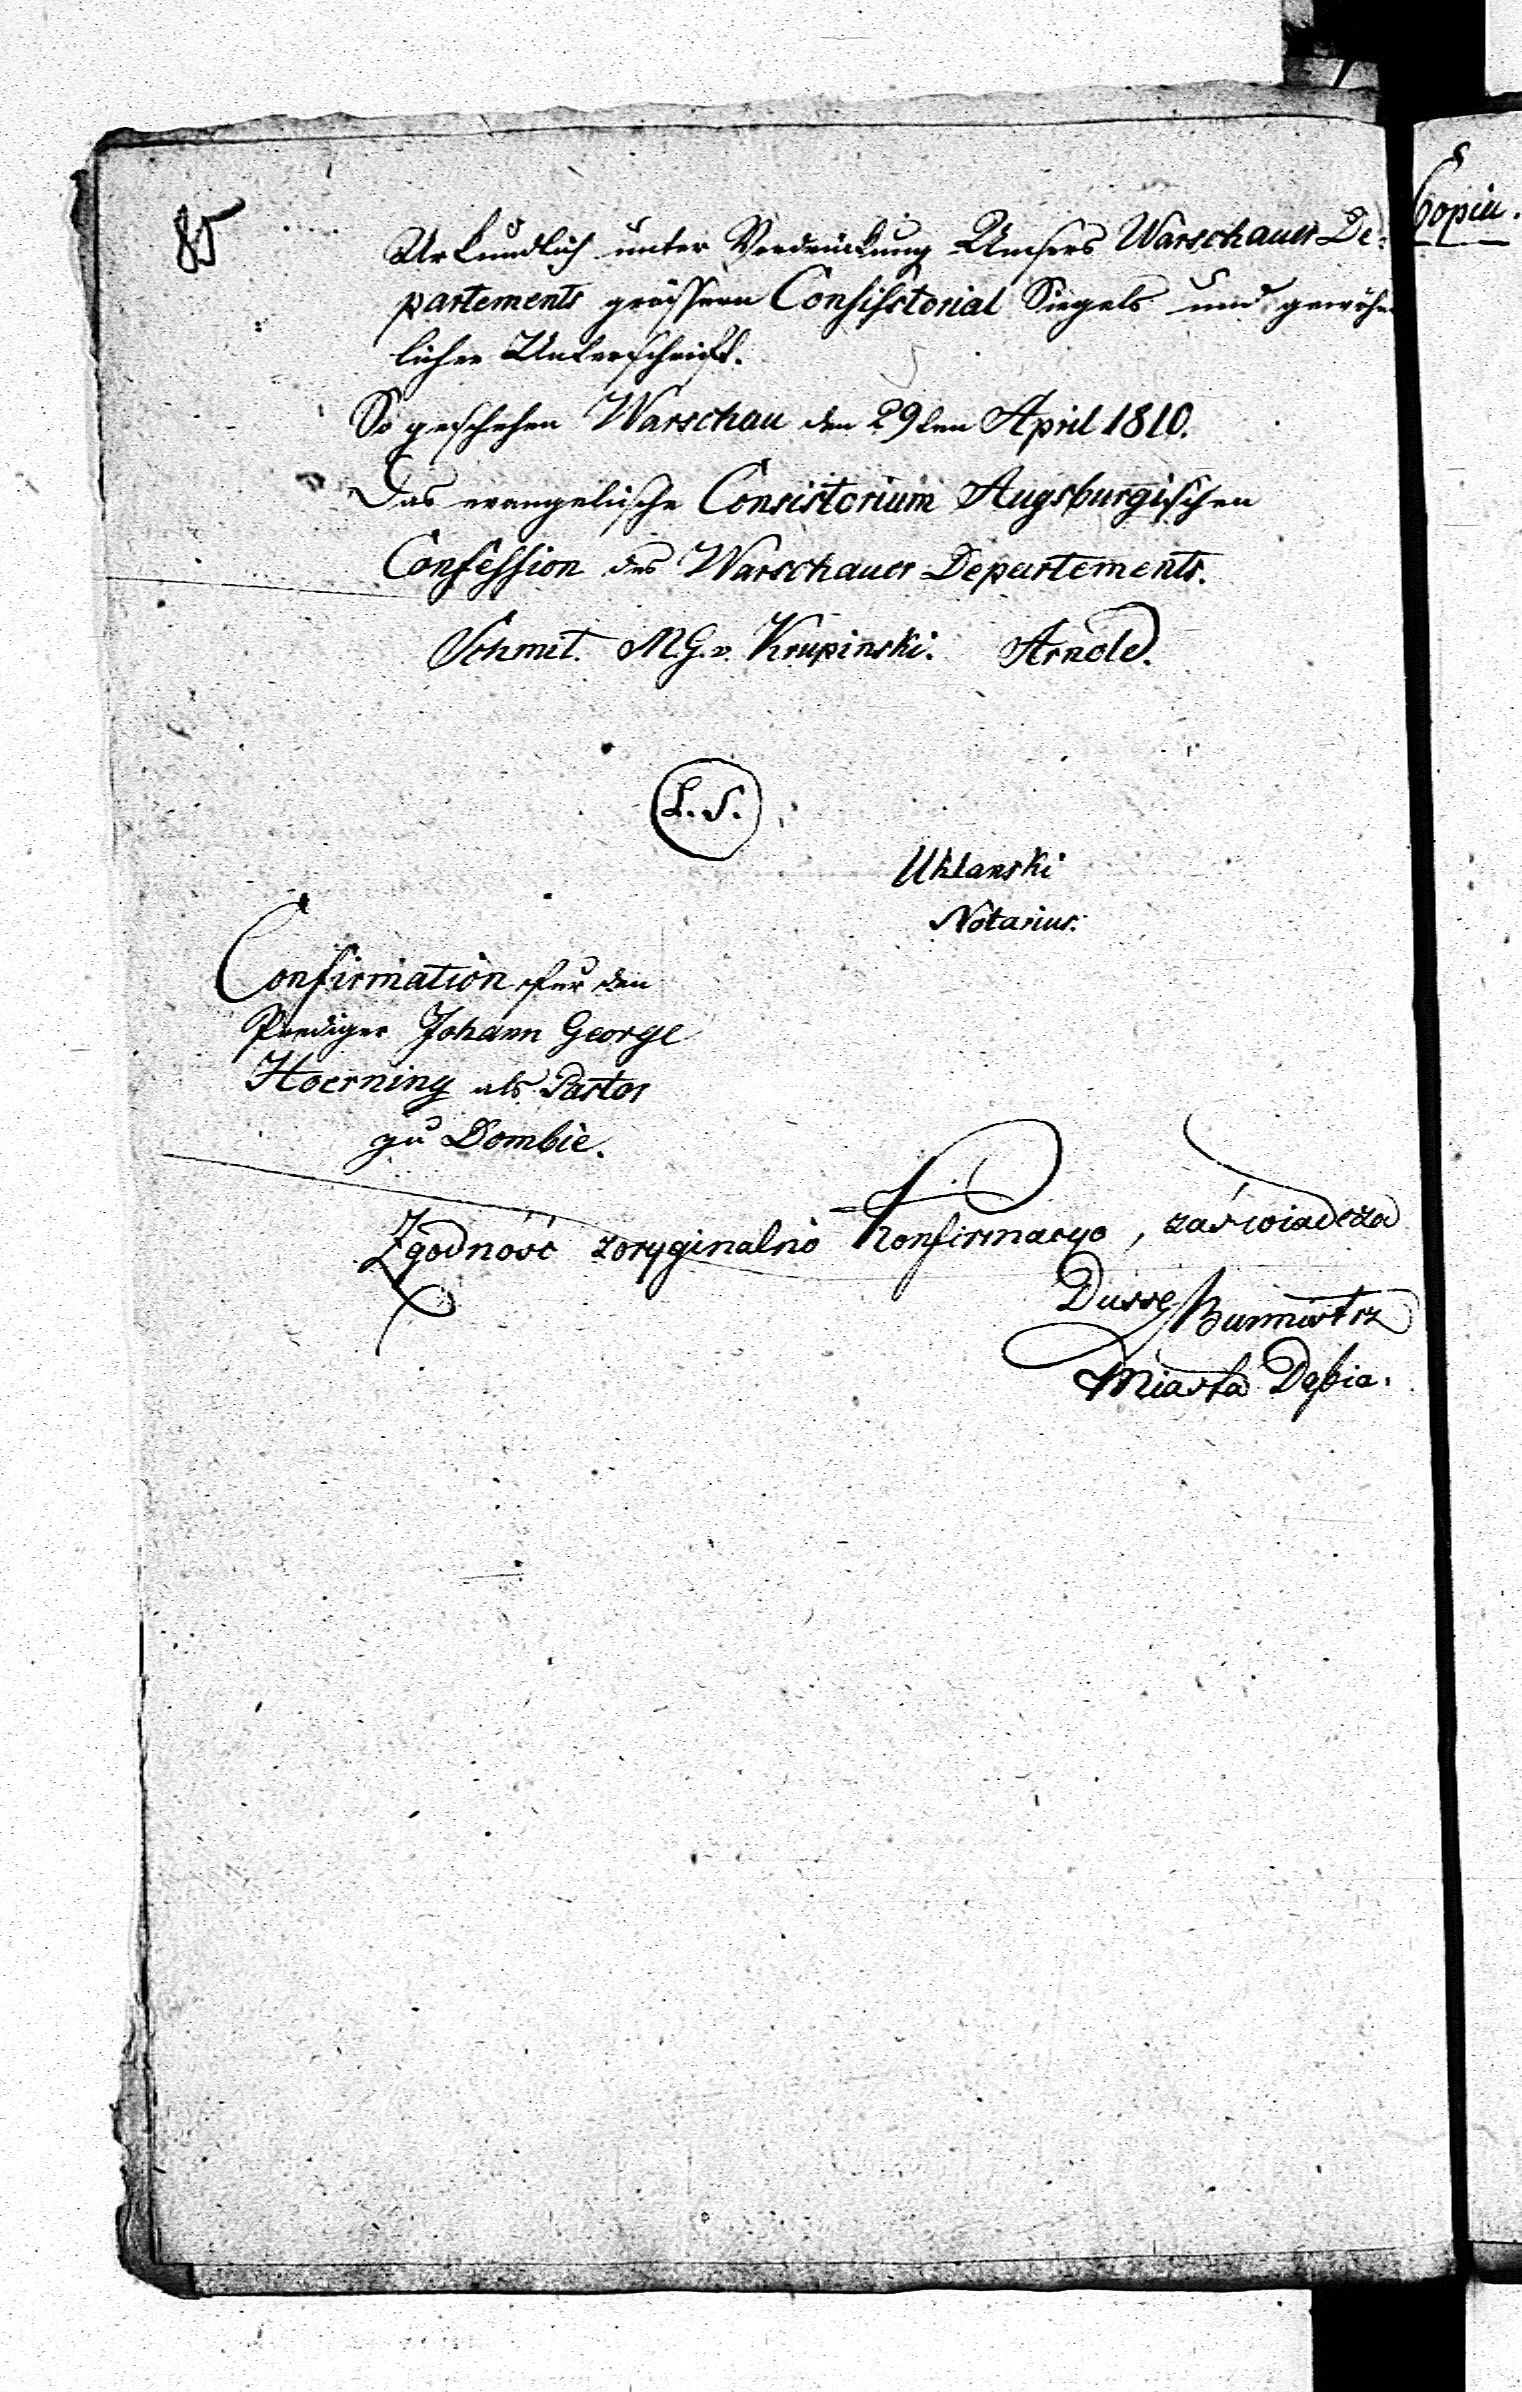 85
Urkundlich unter Vordrückung Unsers Warschauer De-
partements größern Consistorial Siegels und gewöhn
licher Unterschrift.
So geschehen Warschau den 29ten April 1810.
Das evangelische Consistorium Augsburgischen
Confession des Warschauer Departements.
Schmit. M.G.v. Krupinski. Arnold.
L.S.
Uklanski
Notarius.
Confirmation für den
Prediger Johann George
Hoerning als Pastor
zu Dombie.
Zgodność z oryginalno Konfirmacyo, zaświadcza
Dusse Burmistrz
Miasta Dębia.
Copia.